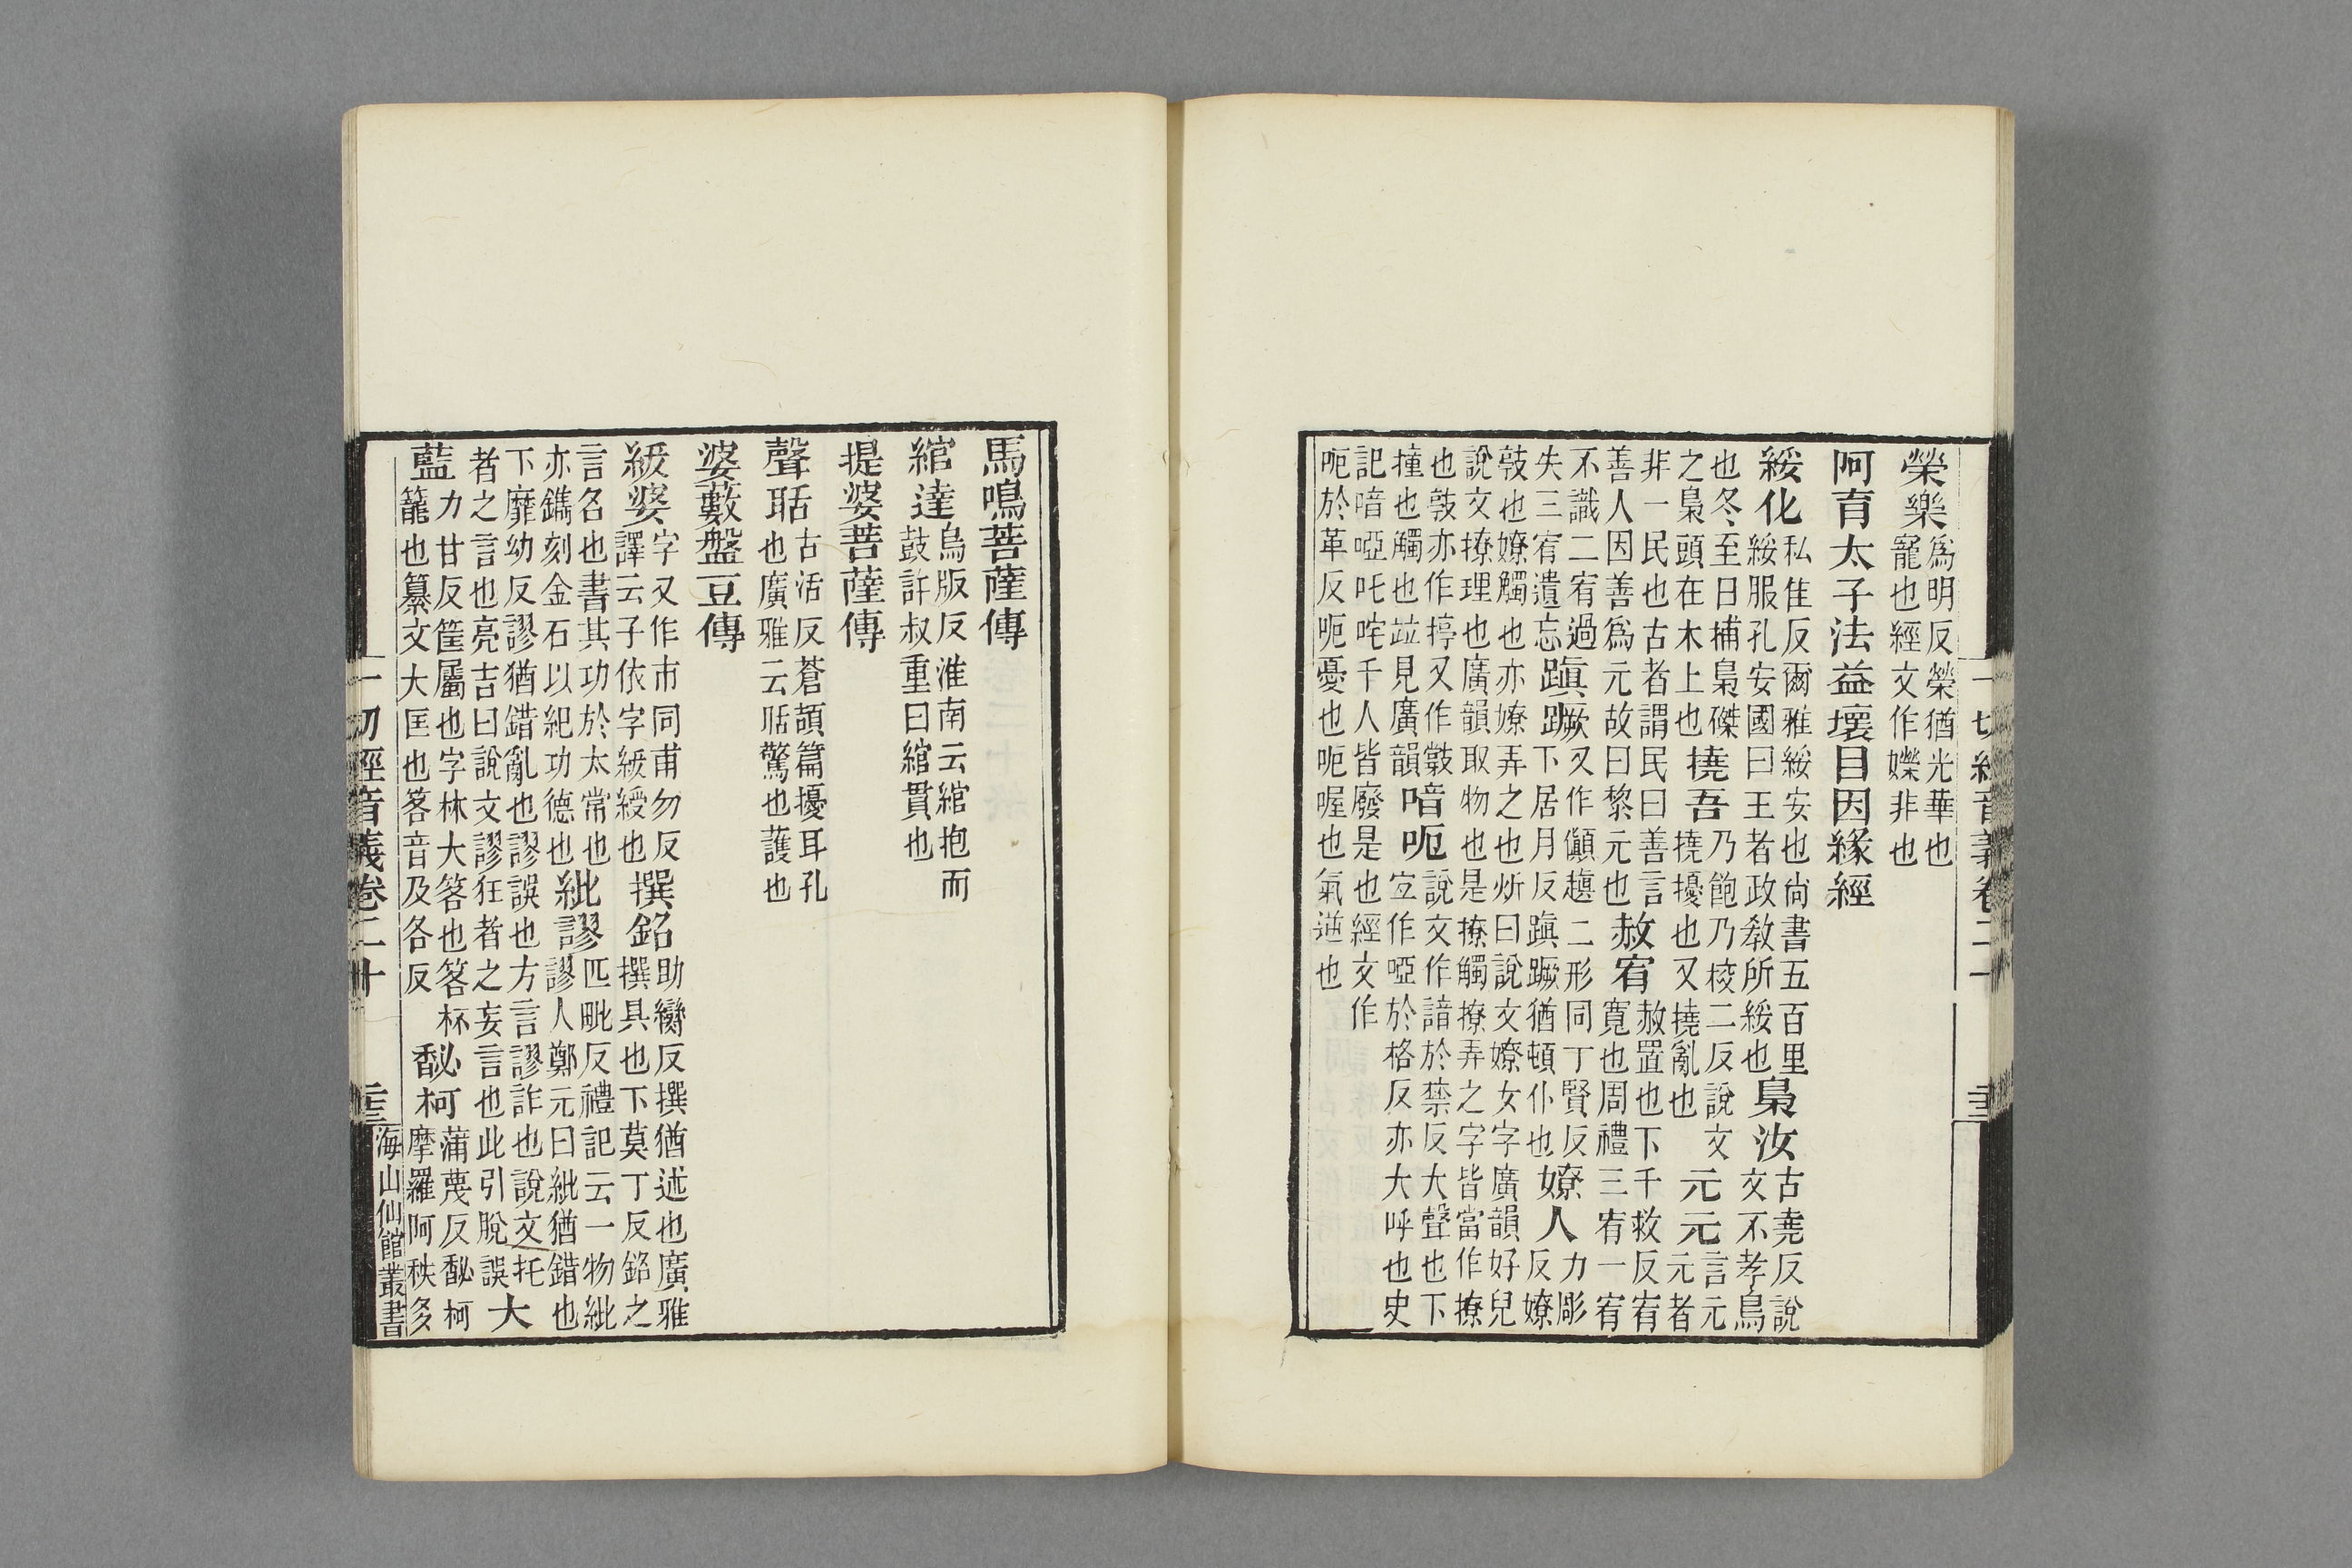 一切經音義卷二十
榮樂爲明反榮猶光華也寵也經文作㜰非也
阿育太子法益壞目因緣經
綏化私隹反爾雅綏安也尚書五百里綏服孔安國曰王者政教所綏也梟汝古堯反說文不孝鳥
也冬至日捕梟磔之梟頭在木上也撓吾乃飽乃校二反說文撓擾也又撓亂也元元言元元者
非一民也古者謂民曰善言善人因善爲元故曰黎元也赦宥赦置也下千救反宥寬也周禮三宥一宥
不識二宥過失三宥遺忘蹎蹶又作傎趚二形同丁賢反下居月反蹎蹶猶頓仆也嫽人力彫反嫽
㪣也嫽觸也亦嫽弄之也炘曰說文嫽女字廣韻好皃說文撩理也廣韻取物也是撩觸撩弄之字皆當作撩
也㪣亦作揨又作撞也觸也竝見廣韻喑呃說文作諳於禁反大聲也下宜作啞於格反亦大呼也史
記喑啞吒咤千人皆廢是也經文作呃於革反呃憂也呃喔也氣逆也
馬鳴菩薩傳
綰達烏版反淮南云綰抱而鼓許叔重曰綰貫也
提婆菩薩傳
聲聒古活反蒼頡篇擾耳孔也廣雅云聒驚也護也
婆藪盤豆傳
紱婆字又作巿同甫勿反譯云子依字紱綬也撰銘助臠反撰猶述也廣雅撰具也下莫丁反銘之
言名也書其功於太常也亦鐫刻金石以紀功德也紕謬匹毗反禮記云一物紕謬人鄭元曰紕猶錯也
下靡幼反謬猶錯亂也謬誤也方言謬詐也說文托者之言也亮吉曰說文謬狂者之妄言也此引脫誤大
藍力甘反筐屬也字林大笿也笿杯籠也纂文大匡也笿音及各反馝柯蒲蔑反馝柯摩羅阿秩多
一切經音義卷二十
海山仙館叢書